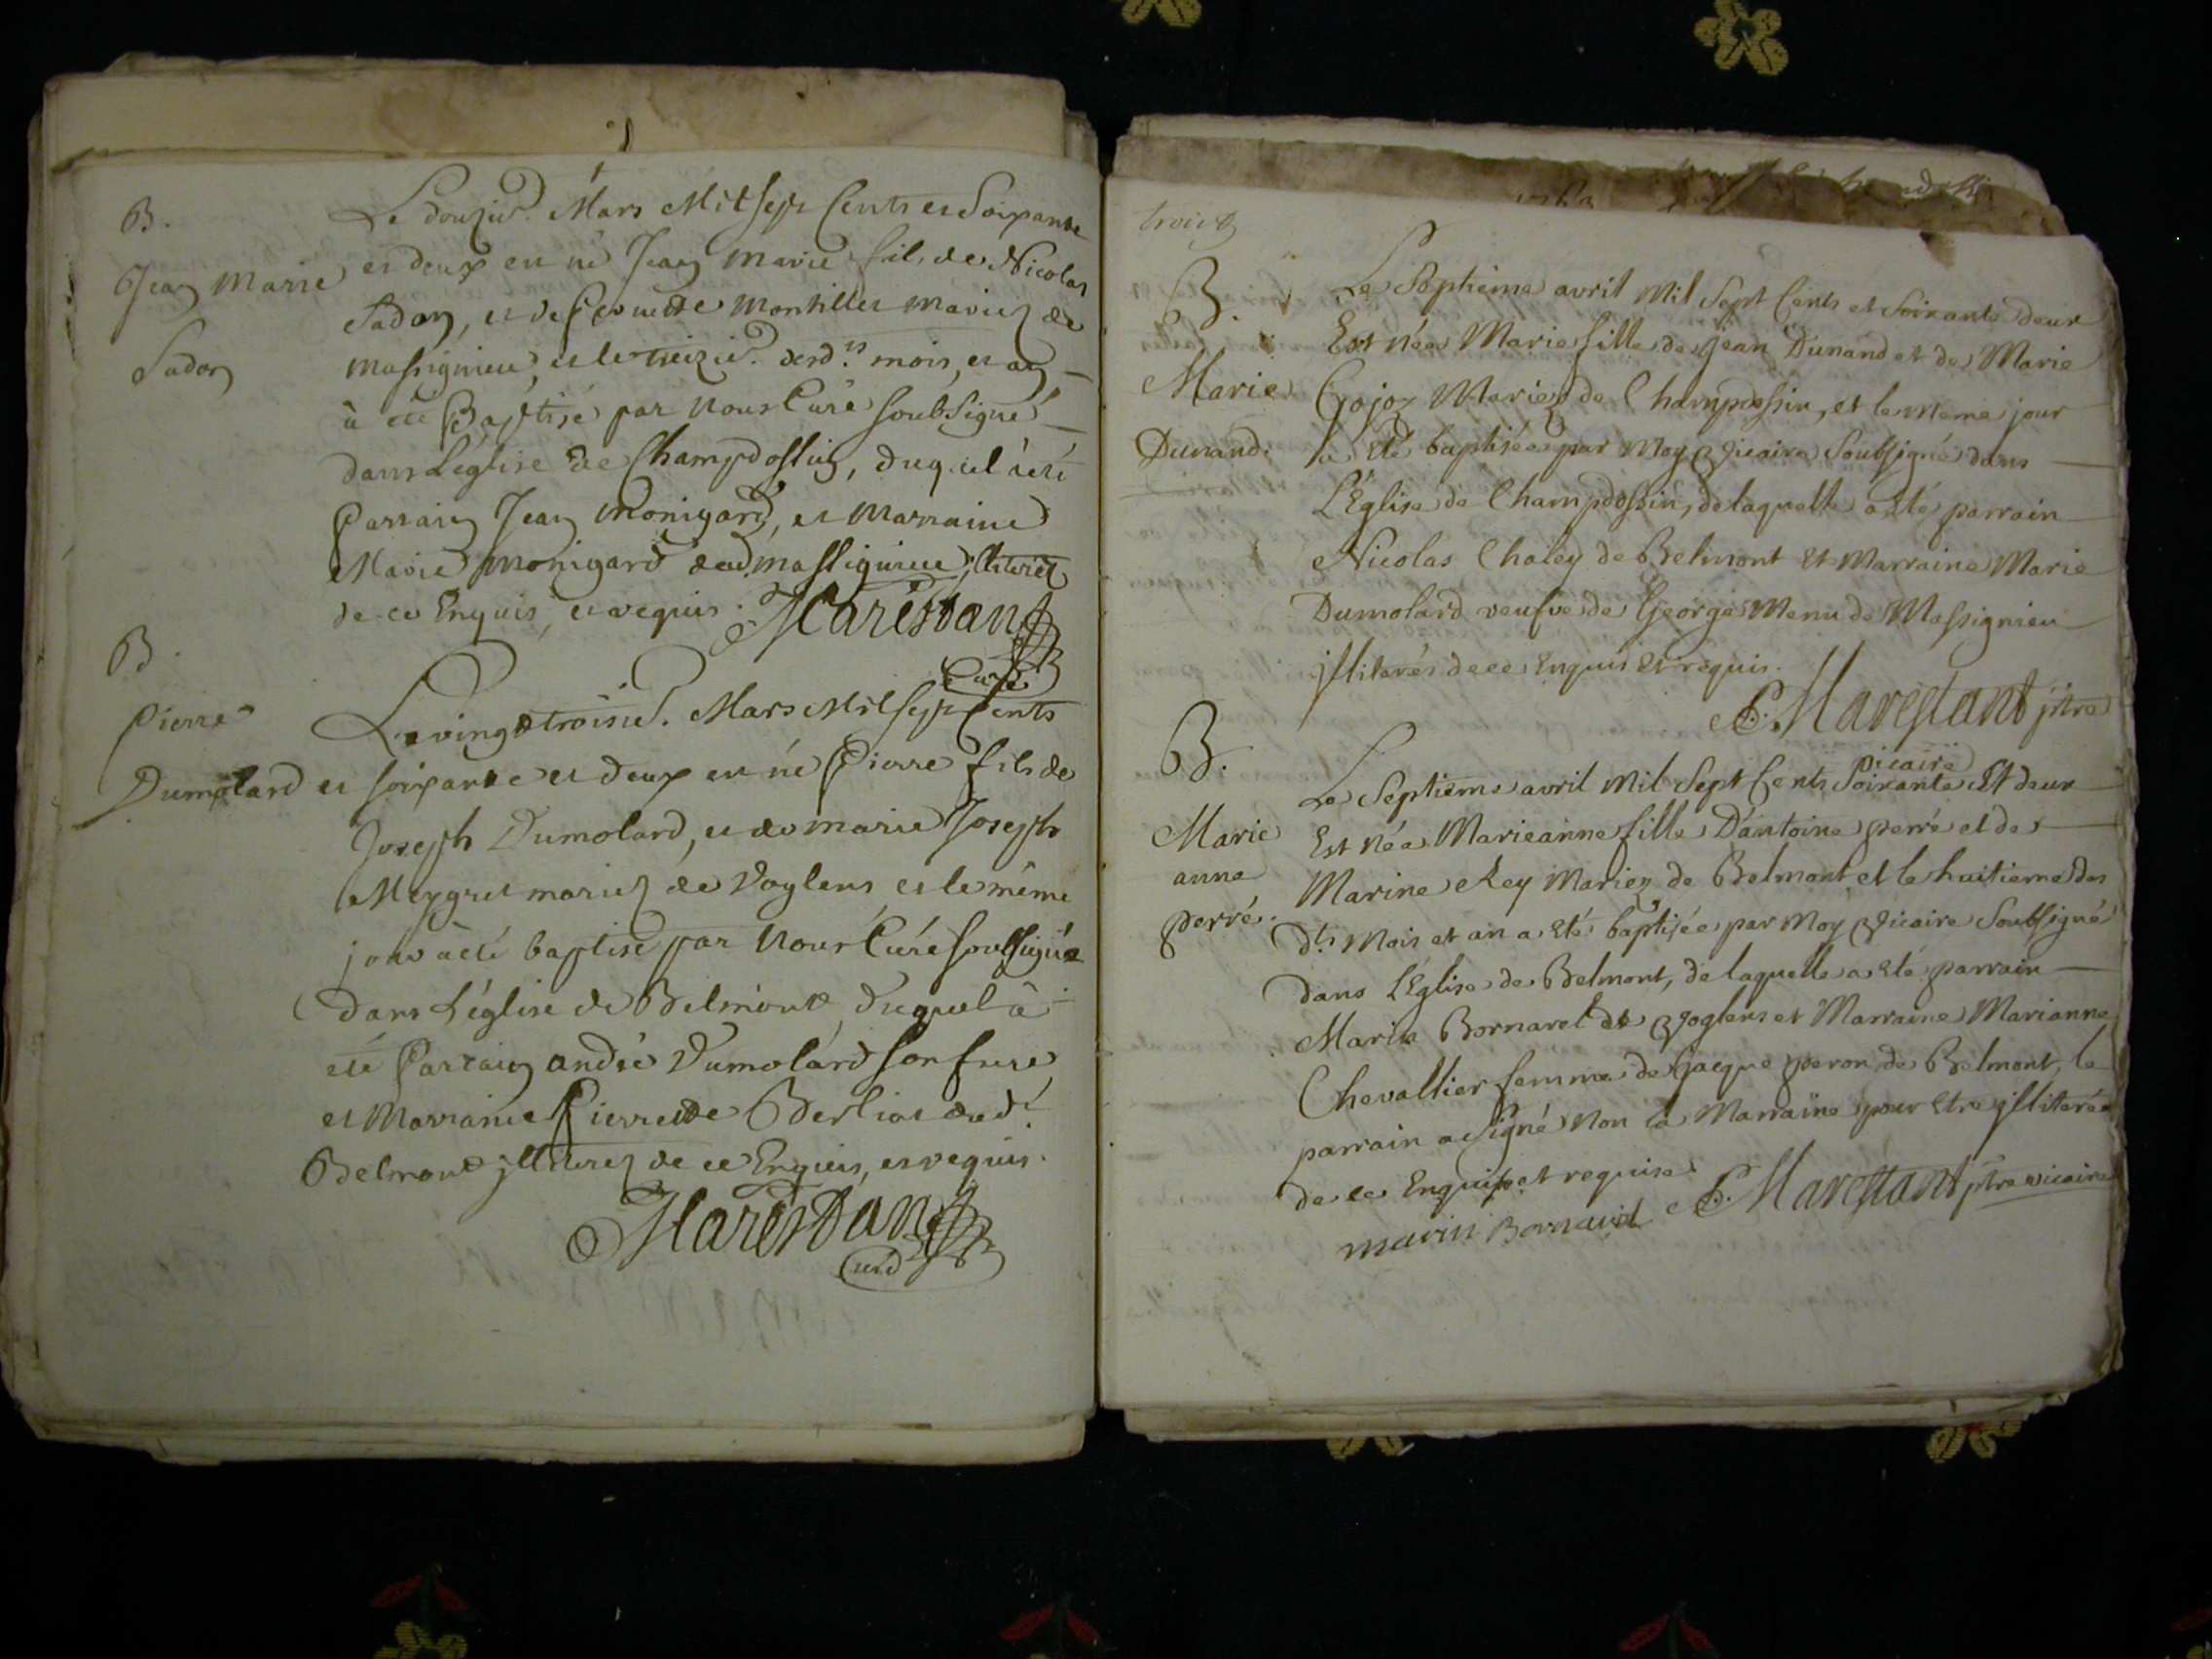 B.
Jean Marie
Sadon
Le douzie. Mars Mil sept Cents et Soixante
et deux est né Jean Marie fils de Nicolas
Sadon, et de Montillet mariez de
Massignieu, et le treizie. desd.ts mois, et an
à été Baptisé par Nous Curé soubsigné
dans L'église de Champdossin, duquel à été
Parrain Jean Monigard, et Marraine
Marie Monigard dud. Massignieu, illiterez
de ce Enquis, et requis.
Marestan
Curé
B.
Pierre
Dumolard
Le vingt troisie. Mars Mil sept Cents
et soixante et deux est né Pierre fils de
Joseph Dumolard, et de marie Joseph
Meygret mariez de Voglens et le même
jour à été baptisé par Nous Curé soubsigné
dans L'église de Belmont, duquel à
été Parrain andré Dumolard son frere
et Marraine Pierrette Berliat dud.t
Belmont jlliterez de ce Enquis, et requis.
Marestan
Curé
trois
B.
Marie
Dunand.
Le Septieme avril Mil Sept Cents et Soixante deux
Est Née Marie fille de Jean Dunand et de Marie
Gojoz Mariez de Champdossin, et le meme jour
a Eté baptisée par Moy Vicaire Soubsigné dans
L'Eglise de Champdossin, de laquelle a Eté parrain
Nicolas Chaley de Belmont Et Marraine Marie
Dumolard veufve de George Menu de Massignieu
jlliterés de ce Enquis Et requis.
Marestant ptre
vicaire
B.
Marie
anne
perré.
Le Septieme avril Mil Sept Cents Soixante Et deux
Est Née Marieanne fille D'antoine perré et de
Marine Rey Mariez de Belmont et le huitieme des
d.ts Mois et an a Eté baptisée par Moy Vicaire Soubsigné
dans L'Eglise de Belmont, de laquelle a Eté parrain
Marin Bornarel de Voglens et Marraine Marianne
Chevallier femme de Jacque peron de Belmont, le
parrain a Signé Non la Marraine pour Etre jlliterée
de ce Enquise et requise.
marin Bornarel Marestant ptre vicaire